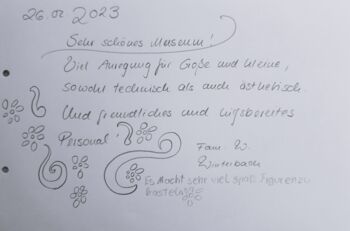 26.02 2023
Sehr schönes Museum!
Viel Anregung für Goße und kleine,
sowohl technisch als auch ästhetisch.
Und freundliches und hilfsbereites
Personal!
Fam. W.
Winterbach
Es Macht sehr viel spaß Figuren zu
basteln